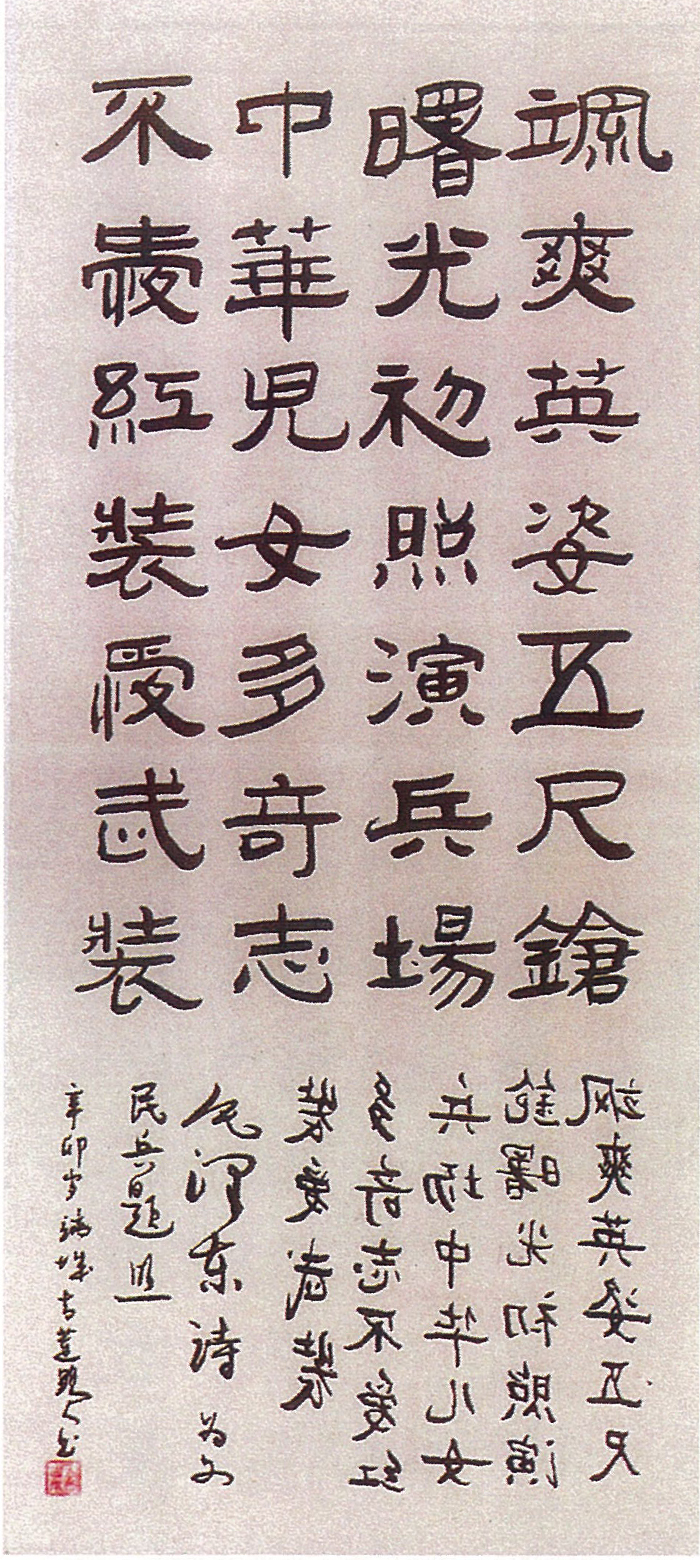 颯爽英姿五尺鎗
曙光初照演兵場
中華兒女多奇志
不愛紅裝愛武裝
飒爽英姿五尺
鎗曙光初照演
兵场中华儿女
多奇志不爱红
装爱武装
毛泽东诗为女
民兵题照
辛卯岁